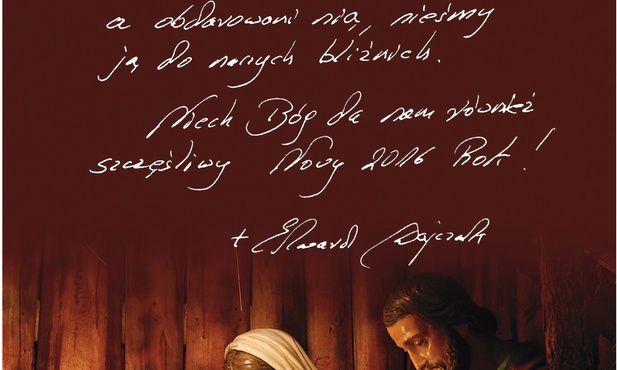 a obdarowani nią, nieśmy
ją do naszych bliźnich.
Niech Bóg da nam również
szczęśliwy Nowy 2016 Rok!
+ Edward Dajczak